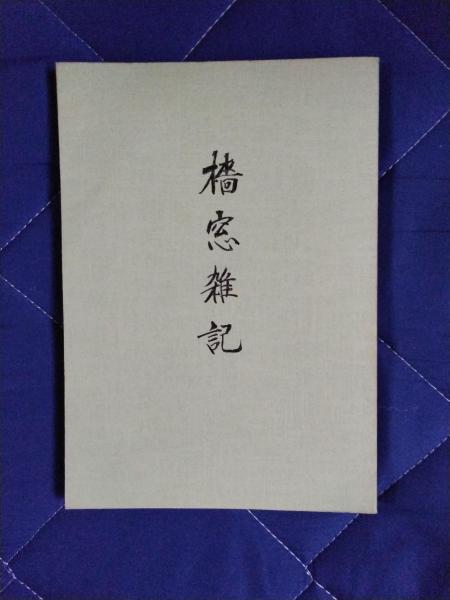 檣窓雑記